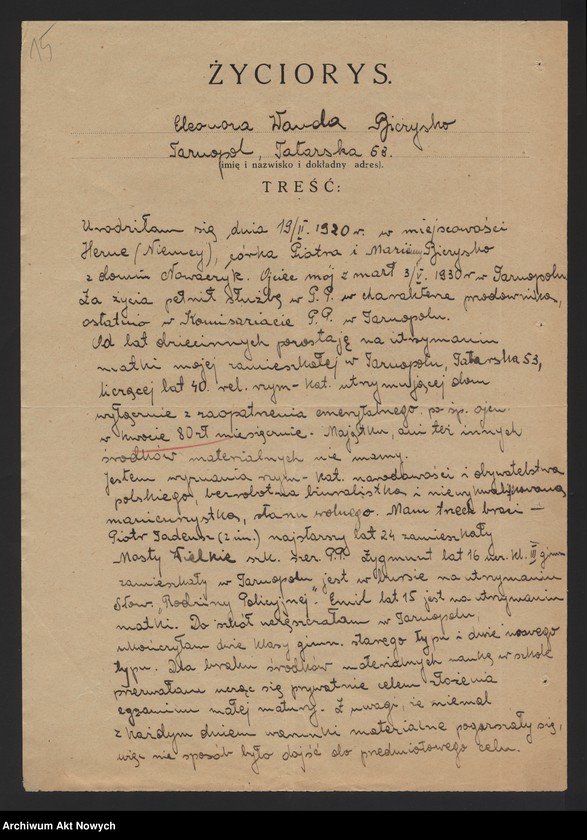 15
ŻYCIORYS.
Eleonora Wanda Bierysko
Tarnopol, Tatarska 53.
(imię i nazwisko i dokładny adres).
TREŚĆ:
Urodziłam się dnia 19/II. 1920 r. w miejscowości
Herne (Niemcy), córka Piotra i Marii Bierysko
z domu Nowaczyk. Ojciec mój zmarł 3/V. 1930 r w Tarnopolu
Za życia pełnił służbę w P.P. w charakterze przodownika,
ostatnio w Komisariacie P.P. w Tarnopolu.
Od lat dziecinnych pozostaję na utrzymaniu
matki mojej zamieszkałej w Tarnopolu, Tatarska 53,
liczącej lat 40. rel. rzym-kat. utrzymującej dom
wyłącznie z zaopatrzenia emerytalnego po śp. ojcu
w kwocie 80 zł miesięcznie. Majątku, ani też innych
środków materialnych nie mamy.
Jestem wyznania rzym-kat. narodowości i obywatelstwa
polskiego, bezrobotna biuralistka i niewykwalifikowana
manicurystka, stanu wolnego. Mam trzech braci –
Piotr Tadeusz (z im.) najstarszy lat 24 zamieszkały
Mosty Wielkie szk. szer. P.P. Zygmunt lat 16 ucz. kl. III gimn
zamieszkały w Tarnopolu jest w bursie na utrzymaniu
Stow. „Rodziny Policyjnej". Emil lat 15 jest na utrzymaniu
matki. Do szkół uczęszczałam w Tarnopolu,
ukończyłam dwie klasy gimn. starego typu i dwie nowego
typu. Dla braku środków materialnych naukę w szkole
przerwałam ucząc się prywatnie celem złożenia
egzaminu małej matury. Z uwagi, że niemal
z każdym dniem warunki materialne pogarszały się,
więc nie sposób było dojść do przedmiotowego celu.
Archiwum Akt Nowych